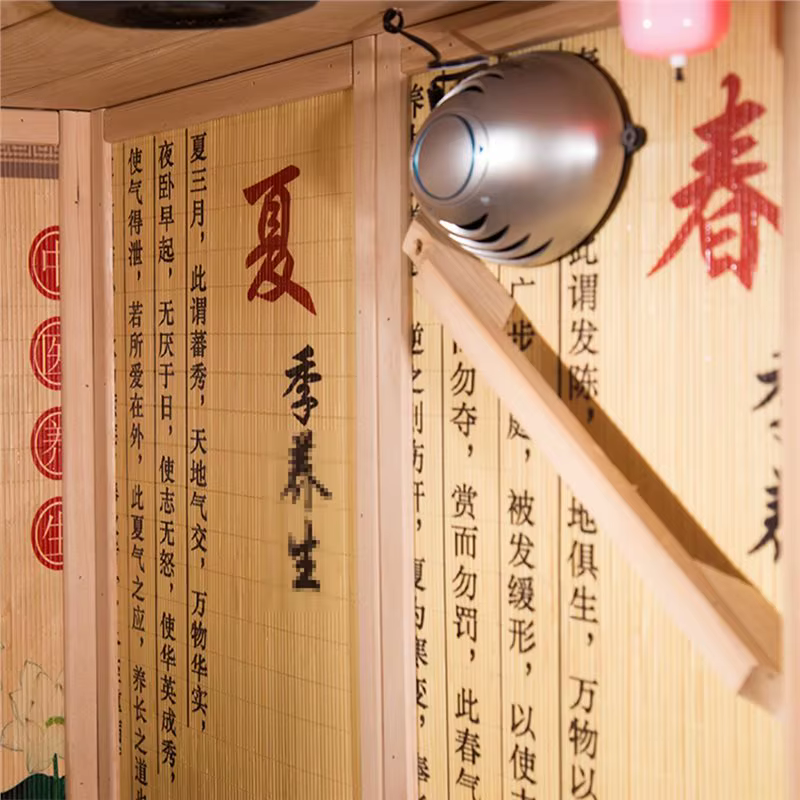 春
此谓发陈，地俱生，万物以
广步庭，被发缓形，以使
勿夺，赏而勿罚，此春气
逆之则伤肝，夏为寒变，
夏
季养生
夏三月，此谓蕃秀，天地气交，万物华实，
夜卧早起，无厌于日，使志无怒，使华英成秀，
使气得泄，若所爱在外，此夏气之应，养长之道也
中医养生